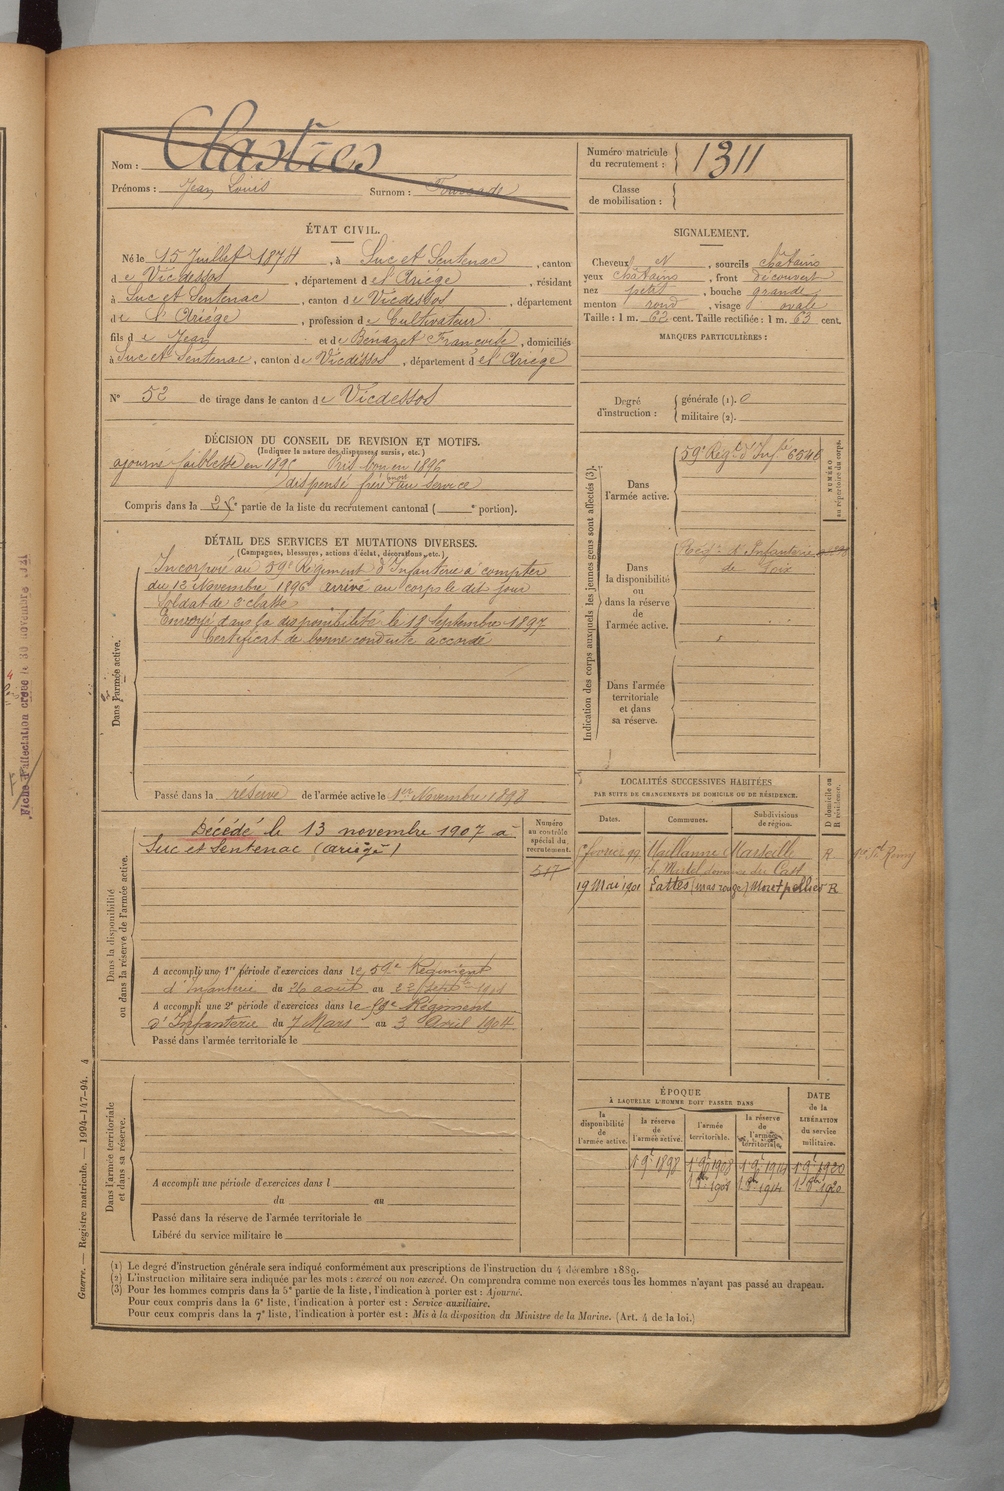 Nom : Clastres
Prénoms : Jean Louis Surnom : Fourcade
Numéro matricule du recrutement : 1311
Classe de mobilisation :
ÉTAT CIVIL.
Né le 15 Juillet 1874, à Suc et Sentenac, canton
de Vicdessos, département de l'Ariége, résidant
à Suc et Sentenac, canton de Vicdessos, département
de l'Ariége, profession de Cultivateur
fils de Jean et de Bénazet Françoise, domiciliés
à Suc et Sentenac, canton de Vicdessos, département de l'Ariége
N° 52 de tirage dans le canton de Vicdessos
SIGNALEMENT.
Cheveux N, sourcils châtains
yeux châtains, front découvert
nez petit, bouche grande
menton rond, visage ovale
Taille : 1 m. 62 cent. Taille rectifiée : 1 m. 63 cent.
MARQUES PARTICULIÈRES :
Degré d'instruction : générale (1). 0
militaire (2).
DÉCISION DU CONSEIL DE REVISION ET MOTIFS.
(Indiquer la nature des dispenses, sursis, etc.)
ajourné faiblesse en 1895 Pris bon en 1896
dispensé frère mort au service
Compris dans la 2e partie de la liste du recrutement cantonal ( e portion).
DÉTAIL DES SERVICES ET MUTATIONS DIVERSES.
(Campagnes, blessures, actions d'éclat, décorations, etc.)
Dans l'armée active.
Incorporé au 59e Régiment d'Infanterie à compter
du 12 Novembre 1896 arrivé au corps le dit jour
Soldat de 2e classe
Envoyé dans la disponibilité le 18 Septembre 1897
Certificat de bonne conduite accordé
Passé dans la réserve de l'armée active le 1er Novembre 1898
Indication des corps auxquels les jeunes gens sont affectés (3).
NUMÉRO au répertoire du corps.
Dans l'armée active.
59e Régt d'Infie 6546
Dans la disponibilité ou dans la réserve de l'armée active.
Régt d'Infanterie
de Foix
Dans l'armée territoriale et dans sa réserve.
Dans la disponibilité ou dans la réserve de l'armée active.
Décédé le 13 novembre 1907 à
Suc et Sentenac (Ariège)
Numéro au contrôle spécial du recrutement.
517
A accompli une 1re période d'exercices dans le 59e Régiment
d'Infanterie du 26 août au 22 Septbre 1901
A accompli une 2e période d'exercices dans le 59e Régiment
d'Infanterie du 7 Mars au 3 Avril 1904
Passé dans l'armée territoriale le
LOCALITÉS SUCCESSIVES HABITÉES
PAR SUITE DE CHANGEMENTS DE DOMICILE OU DE RÉSIDENCE.
Dates. Communes. Subdivisions de région. D domicile ou R résidence.
1er février 99 Maillanne Marseille R
19 Mai 1901 Lattes (mas rouge) Montpellier R
Dans l'armée territoriale et dans sa réserve.
A accompli une période d'exercices dans l
du au
Passé dans la réserve de l'armée territoriale le
Libéré du service militaire le
ÉPOQUE
À LAQUELLE L'HOMME DOIT PASSER DANS
la disponibilité de l'armée active. la réserve de l'armée active. l'armée territoriale. la réserve de l'armée territoriale.
DATE de la LIBÉRATION du service militaire.
1 9e 1898 1 9e 1908 1 9e 1914 1 9e 1920
1 8bre 1908 1 8bre 1914 1 8bre 1920
(1) Le degré d'instruction générale sera indiqué conformément aux prescriptions de l'instruction du 4 décembre 1889.
(2) L'instruction militaire sera indiquée par les mots : exercé ou non exercé. On comprendra comme non exercés tous les hommes n'ayant pas passé au drapeau.
(3) Pour les hommes compris dans la 5e partie de la liste, l'indication à porter est : Ajourné.
Pour ceux compris dans la 6e liste, l'indication à porter est : Service auxiliaire.
Pour ceux compris dans la 7e liste, l'indication à porter est : Mis à la disposition du Ministre de la Marine. (Art. 4 de la loi.)
Guerre. — Registre matricule. — 1994-147-94. 4